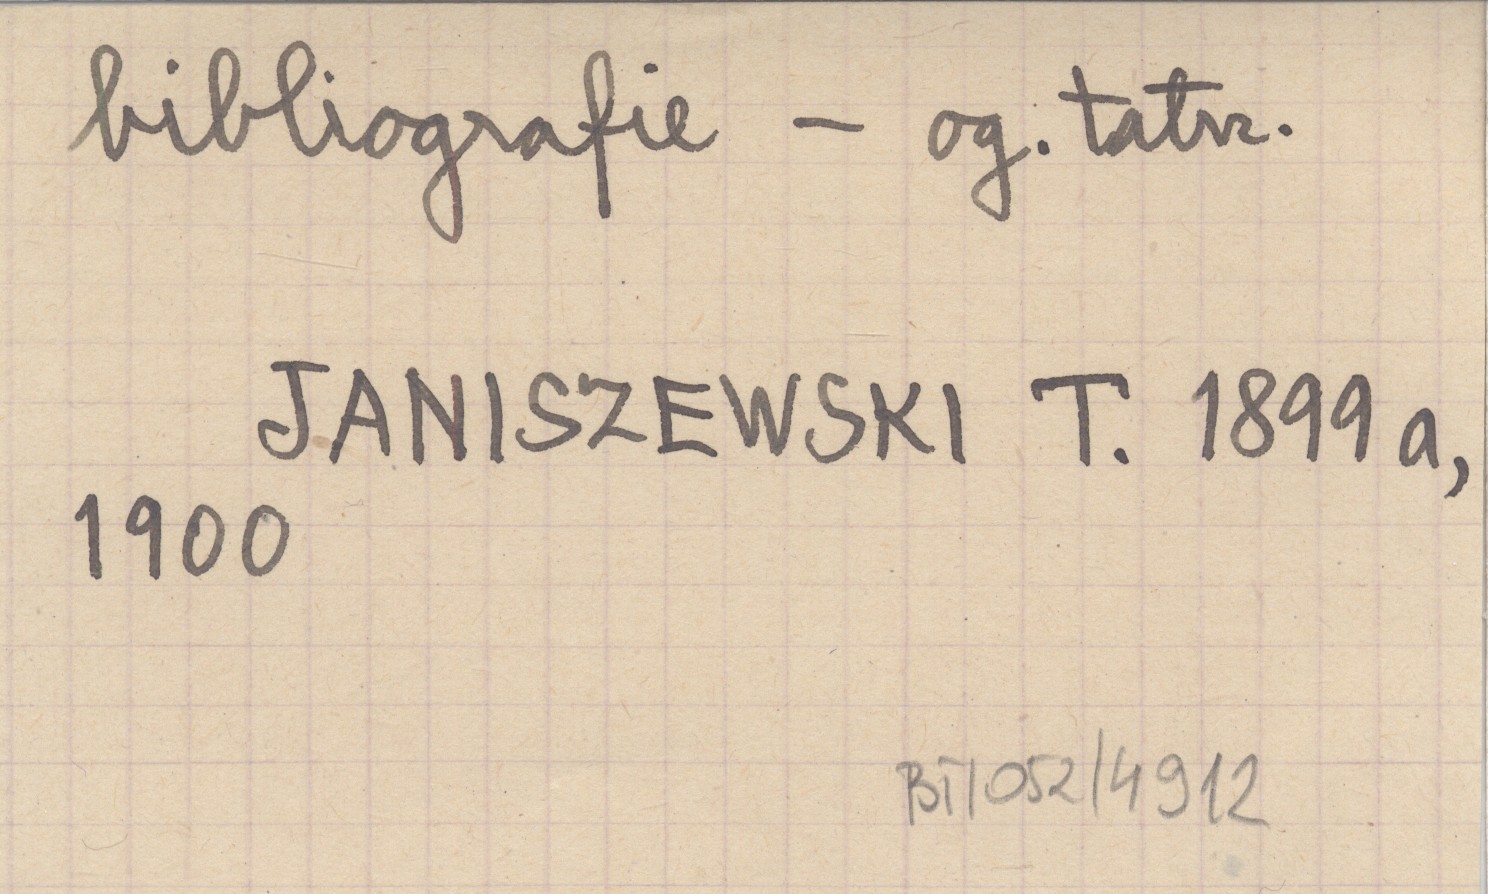 bibliografie - og. tatrz.
JANISZEWSKI T. 1899 a,
1900
BT/052/4912